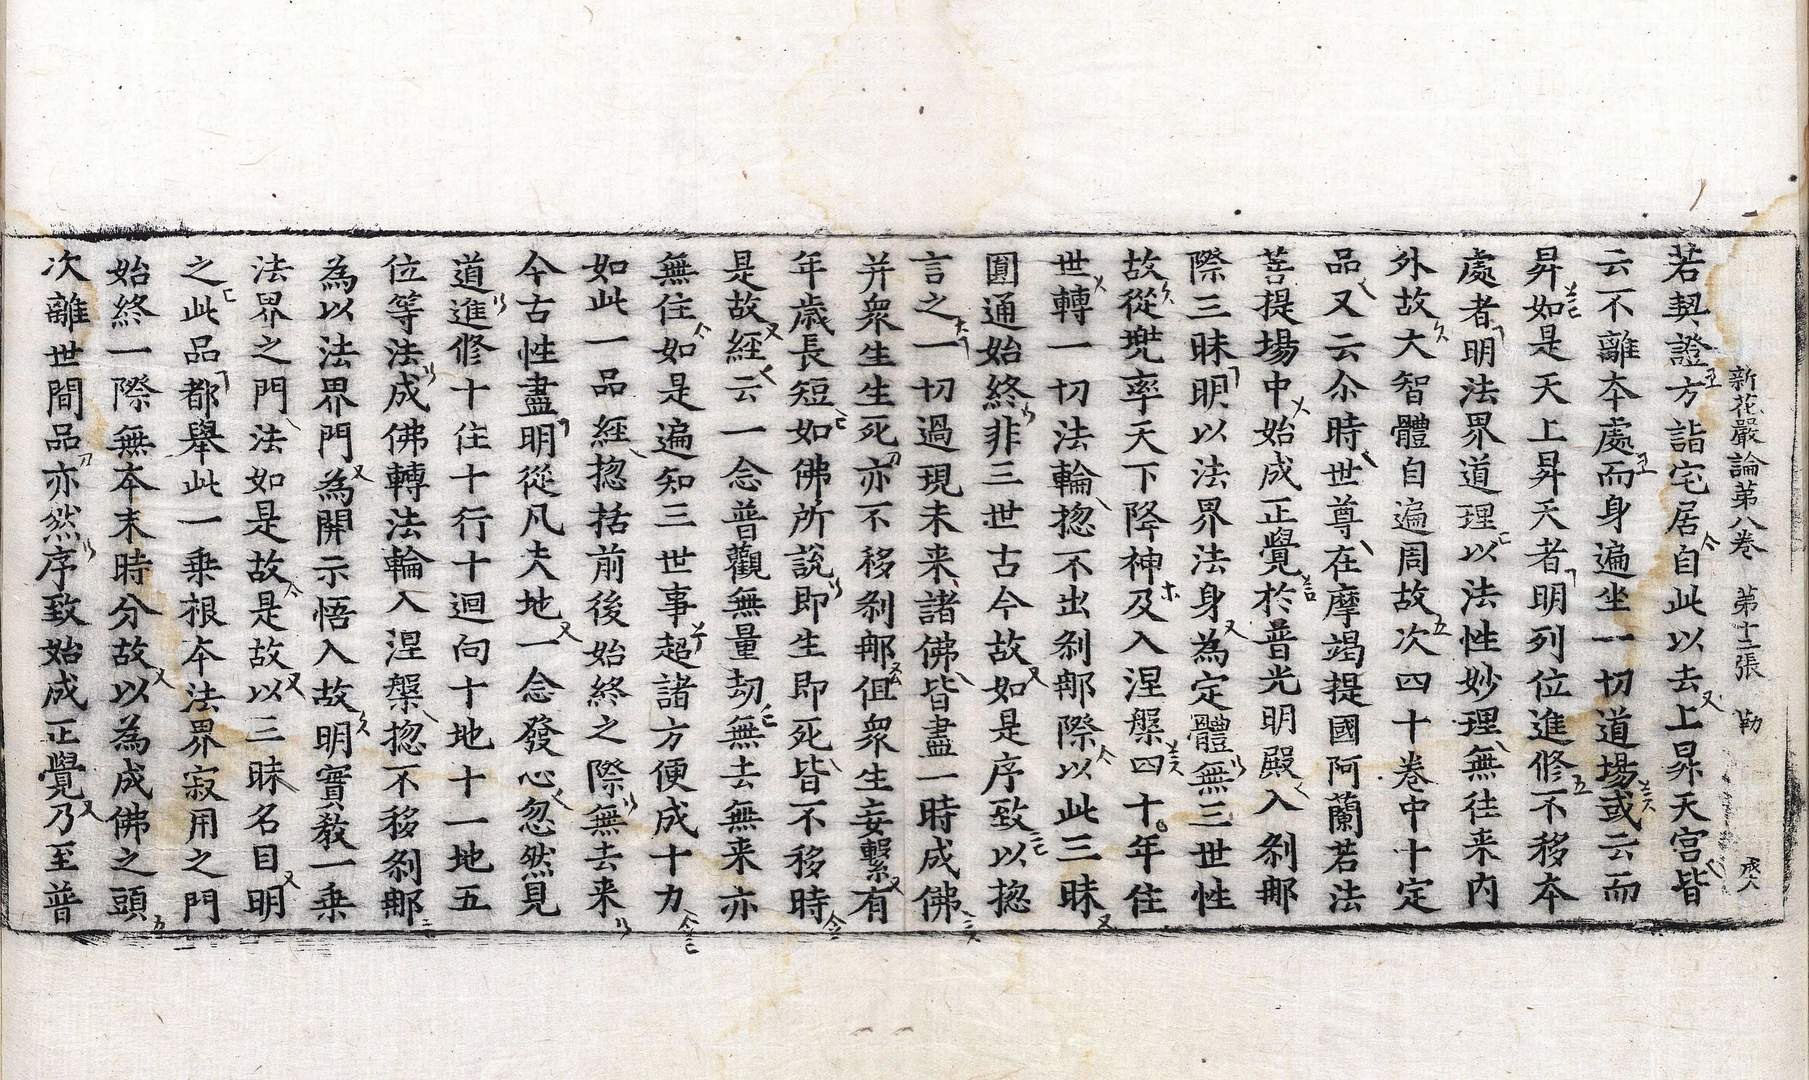 新花嚴論第八卷 第十二張 勒
若契證方詣宅居自此以去上昇天宮皆
云不離本處而身遍坐一切道場或云而
昇如是天上昇天者明列位進修不移本
處者明法界道理以法性妙理無往来内
外故大智體自遍周故次四十卷中十定
品又云尒時世尊在摩竭提國阿蘭若法
菩提場中始成正覺於普光明殿入刹那
際三昧明以法界法身為定體無三世性
故從兠率天下降神及入涅槃四十年住
世轉一切法輪捴不出刹那際以此三昧
圓通始終非三世古今故如是序致以捴
言之一切過現未来諸佛皆盡一時成佛
并衆生生死亦不移刹那但衆生妄繫有
年歲長短如佛所說即生即死皆不移時
是故經云一念普觀無量劫無去無来亦
無住如是遍知三世事超諸方便成十力
如此一品經捴括前後始終之際無去来
今古性盡明從凡夫地一念發心忽然見
道進修十住十行十迴向十地十一地五
位等法成佛轉法輪入涅槃捴不移刹那
為以法界門為開示悟入故明實教一乗
法界之門法如是故是故以三昧名目明
之此品都舉此一乗根本法界寂用之門
始終一際無本末時分故以為成佛之頭
次離世間品亦然序致始成正覺乃至普